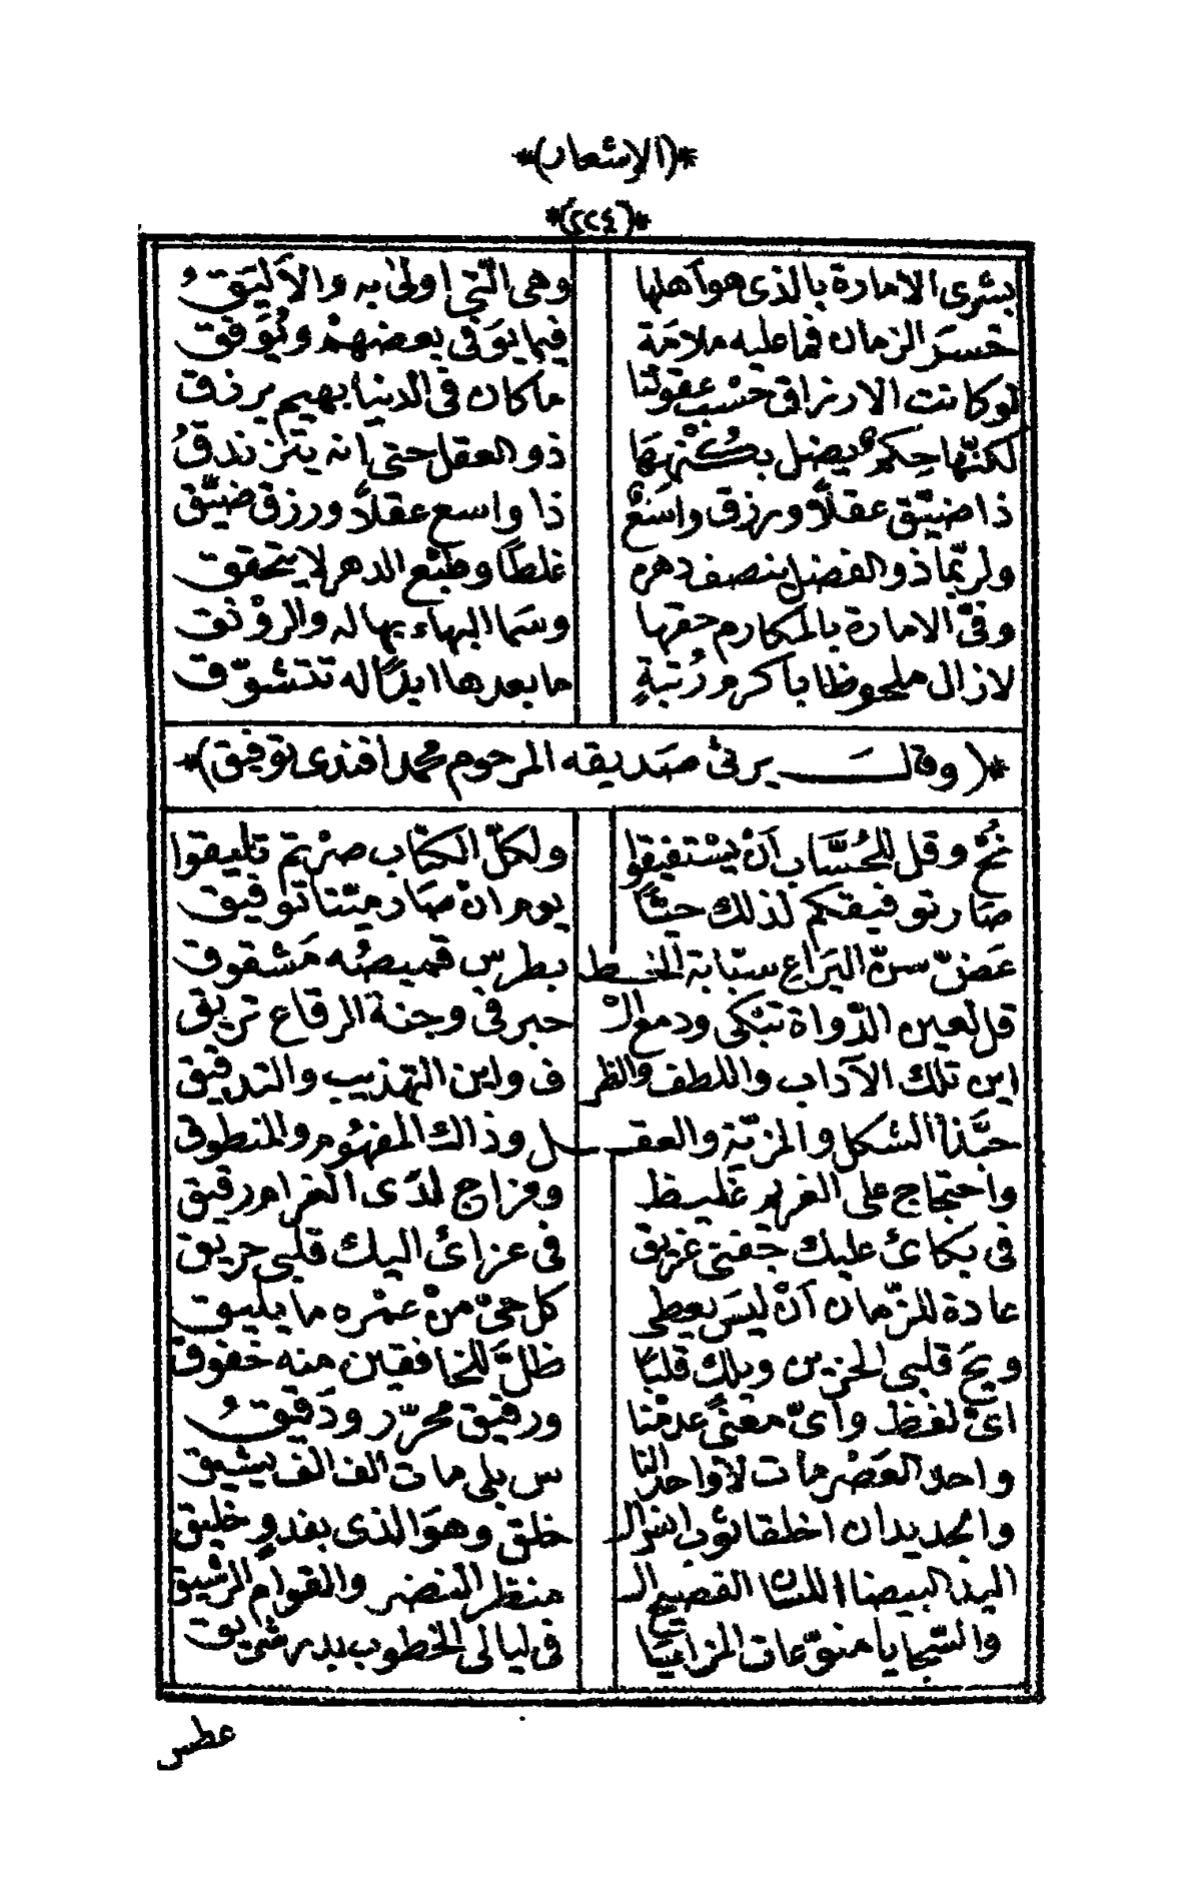 *(الإشعار)*
*(٢٢٤)*
بشرى الامارة بالذى هو آهلها وهى الّتى اولى به والأليَقُ
خسَرَ الزمان فما عليه ملامَة فيما يوَفى بعضهمْ ويُوَفق
لوكانت الارزاق حَسْب عقولنا ما كان فى الدنيا بهيم يرزق
لكنّها حِكمٌ يضل بكُنْهِهَا ذو العقل حتى انه يتزندقُ
ذا ضيّق عقلاً ورزق واسَعٌ ذا واسع عقلاً ورزق ضيّق
ولربّما ذو الفضل ينصف دهره غلطاً وطبْع الدهر لا يتحقق
وفىّ الامارة بالمكارم حقها وسَما البهاء بها له والروْنق
لازال ملحوظا باكرم رُتبةٍ ما بعدها ابدًا له تتشوّق
*(وقالَ يرثى صَديقه المرحوم محمد افندى توفيق)*
نُحْ وقل للحُسَّاب أنْ يسْتفيقوا ولكلّ الكتّاب صرْتم تليقوا
صَار توفيقكم لذلك حيثًا يوم انْ صَار ميّتا توفيق
عَضّ سنّ اليَراع سبّابة الخط بطرس قميصُه مَشقوق
قل لعين الدّواة تبْكى ودمع الـْ حبر فى وجنة الرقاع تريق
اين تلك الآداب واللطف والظر ف واين التهذيب والتدقيق
حبَّذا الشكل والمزيّة والعقـ ـل وذاك المفهُوم والمنطوق
واحتجاج على الغريم غَليظ ومزاج لدَى الغرام رقيق
فى بكائ عليك جفنى غريق فى عزائ اليك قلبى حريق
عادة للزّمان أنْ ليسَ يعطى كل حىّ منْ عمْره ما يليق
ويحَ قلبى الحزين ويلك قلبًا ظلَّ للخافقين منه خفوق
اىّ لفظ واىّ معنىً عدمْنا ورقيق محرّر ودَقيقُ
واحد العَصْر مات لا واحد النا س بلى مات الف الف يشيق
والجديدان اخلقا ثوب انس الـ خلق وهوَ الذى بفدوٍ خليق
اليد البيضا اللسَان الفصيح الـ منظر النضر والقوام الرشيق
والسّجايا منوّعات المزاعيَا فى ليالى الخطوب بدر شريق
عطر